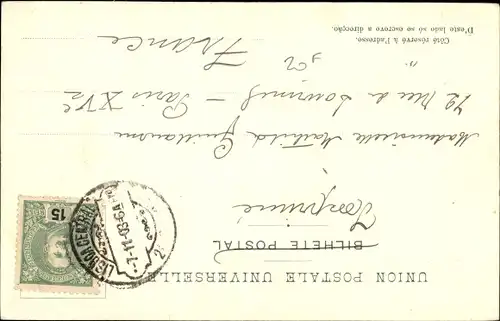 UNION POSTALE UNIVERSELLE
BILHETE POSTAL
15
LISBOA CENTRAL
7-11-03-6A
Mademoiselle Mathilde Guillaume
72 Rue de Lourmel - Paris XVe
France
Côté réservé à l'adresse.
D'este lado só se escreve a direcção.